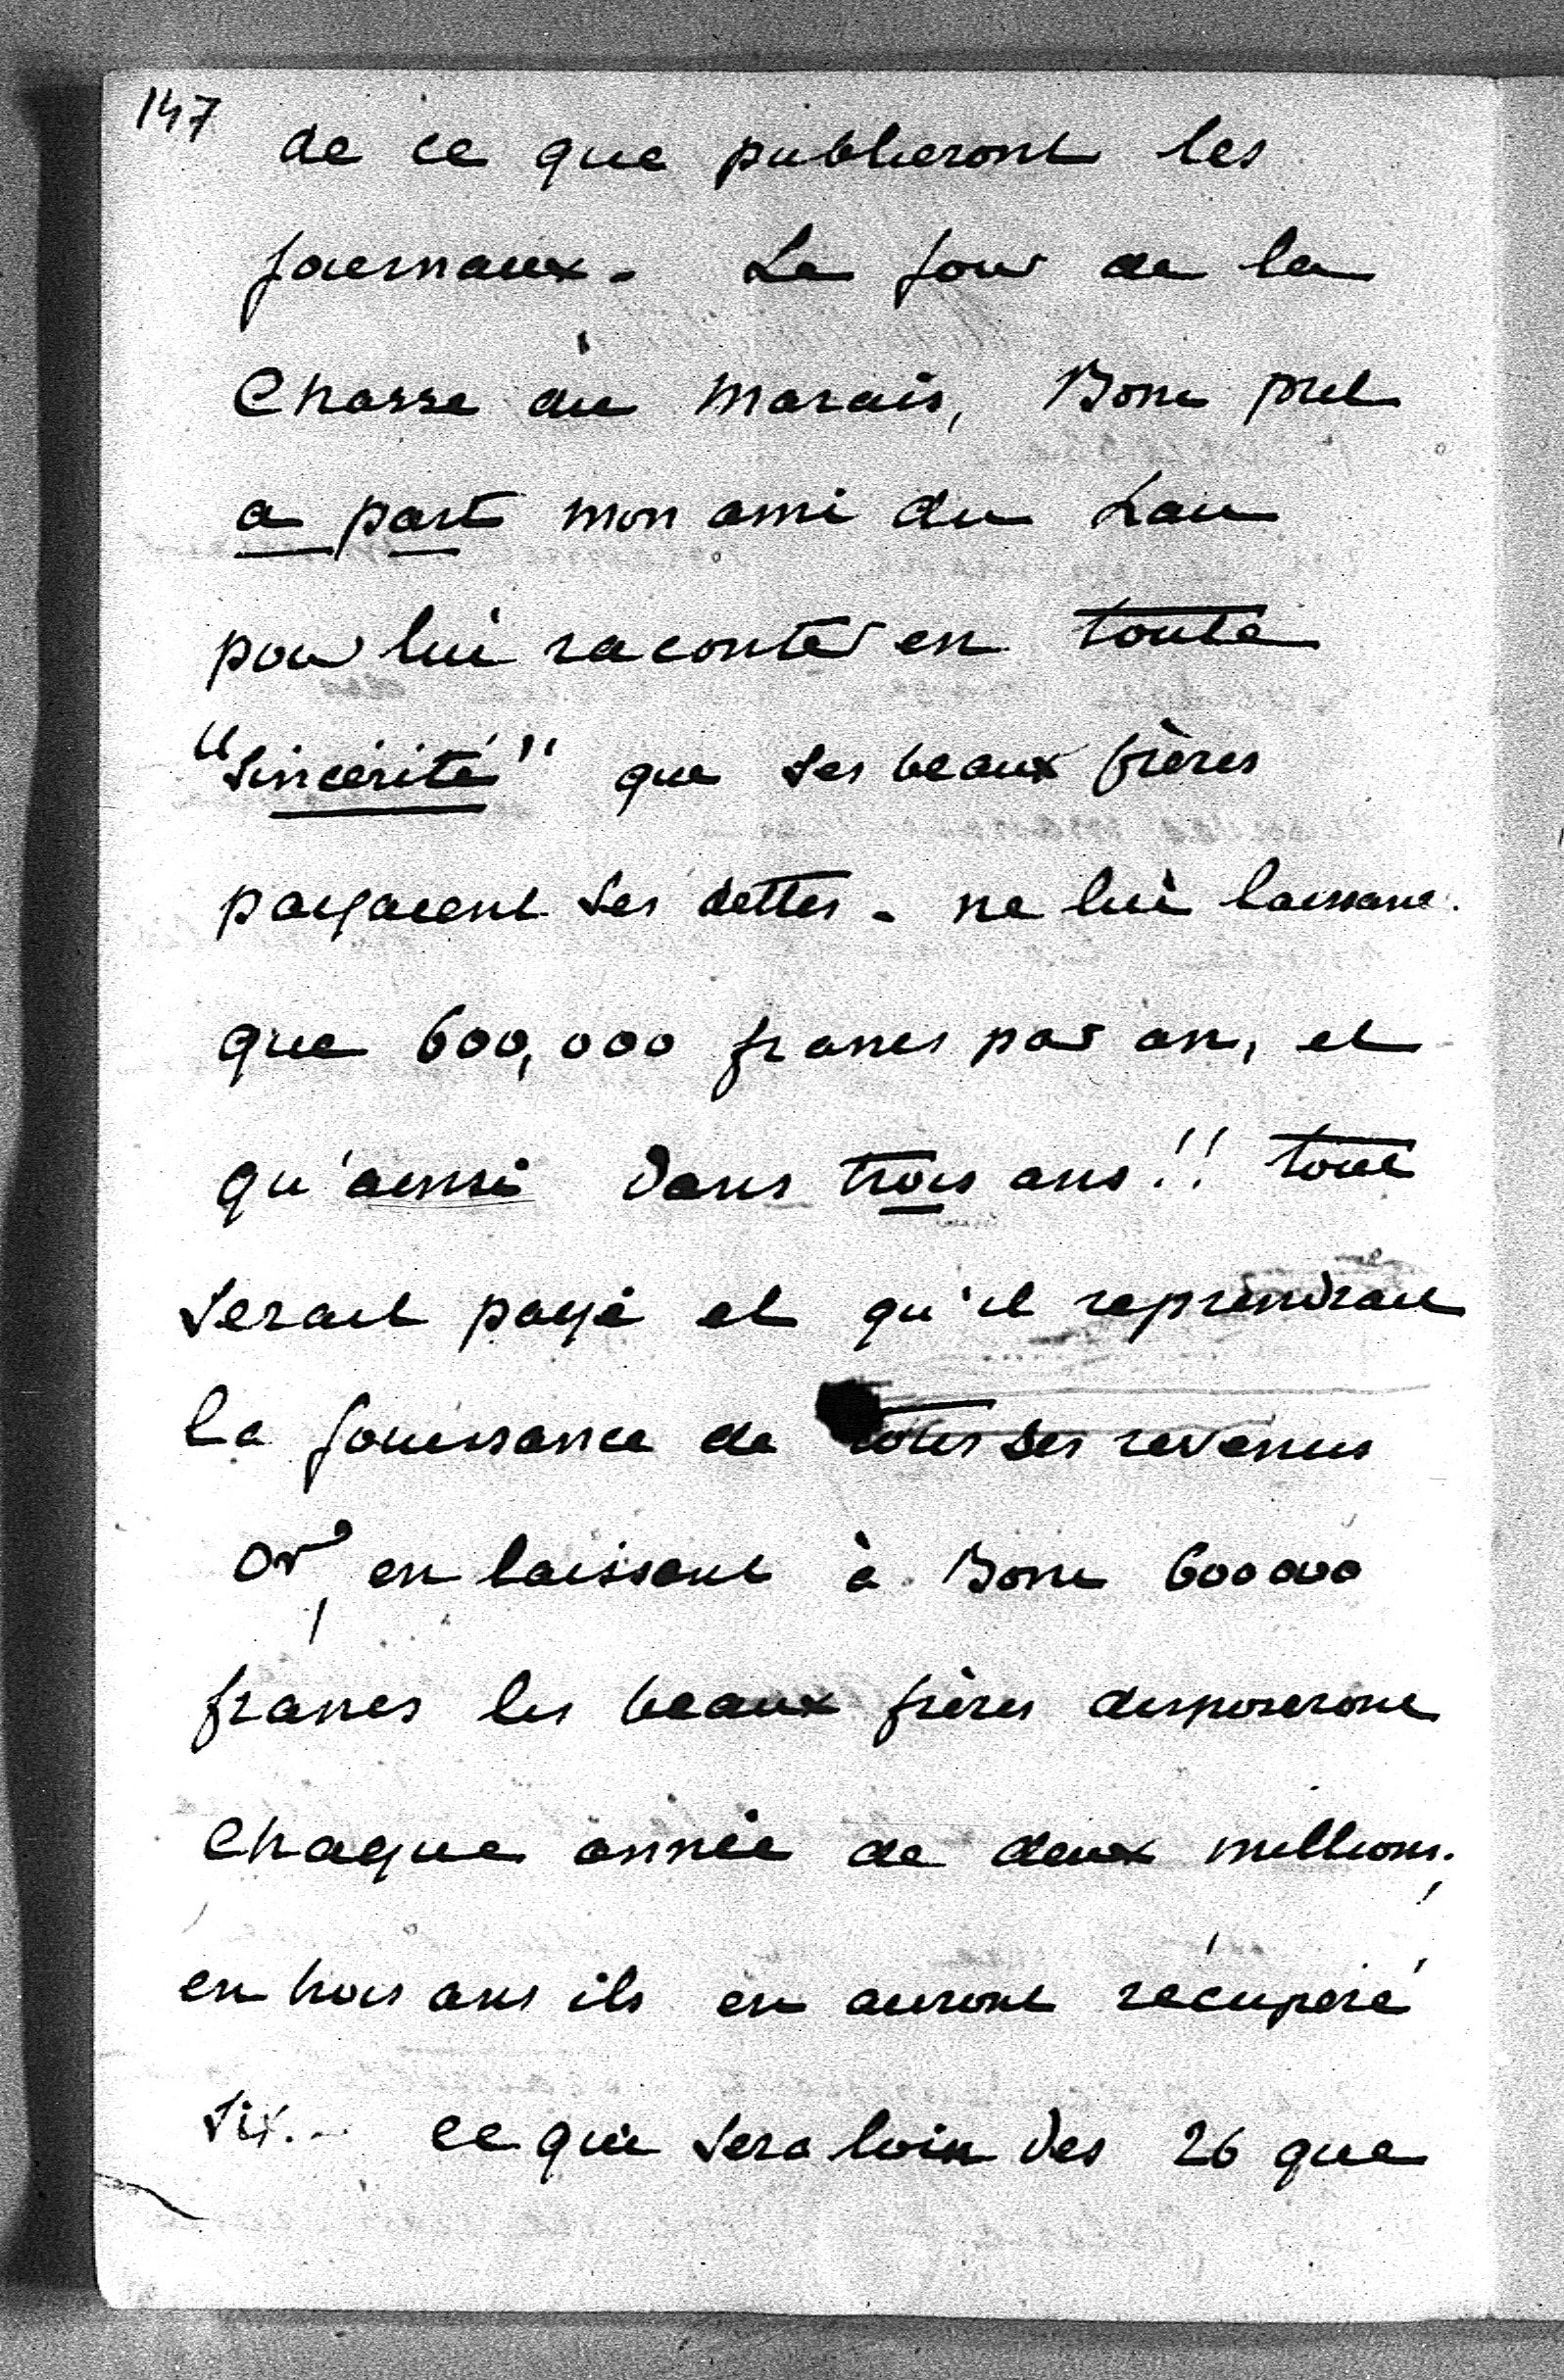 147
de ce que publieront les
journaux. Le jour de la
Chasse du Marais, Boni prit
a part mon ami du Lau
pour lui raconter en toute
"sincérité" que ses beaux frères
payaient ses dettes - ne lui laissant
que 600,000 francs par an, et
qu'ainsi dans trois ans !! tout
serait payé et qu'il reprendrait
la jouissance de tous ses revenus
Or, en laissant à Boni 600000
francs les beaux frères disposeront
chaque année de deux millions,
en trois ans ils en auront récupéré
six.. ce qui sera loin des 26 que